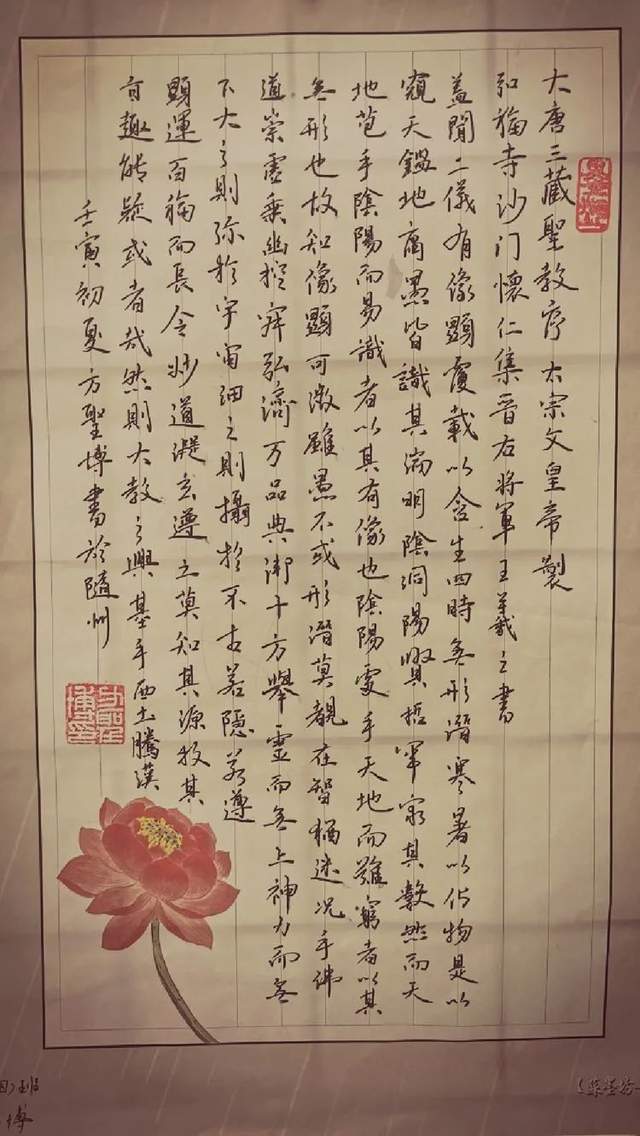 大唐三藏聖教序 太宗文皇帝製
弘福寺沙门懷仁集晋右將軍王羲之書
蓋聞二儀有像顯覆載以含生四時無形潛寒暑以化物是以
窺天鑑地庸愚皆識其端明陰洞陽賢哲罕窮其數然而天
地苞乎陰陽而易識者以其有像也陰陽處乎天地而難窮者以其
無形也故知像顯可徵雖愚不或形潛莫覩在智猶迷况乎佛
道崇虛乘幽控寂弘濟万品典御十方舉靈而無上神力而無
下大之則弥於宇宙細之則攝於不若隱若遵
顯運百福而長今妙道凝玄遵之莫知其源其
旨趣能疑或者哉然則大教之興基乎西土騰漢
壬寅初夏方聖博書於隨州
班
博